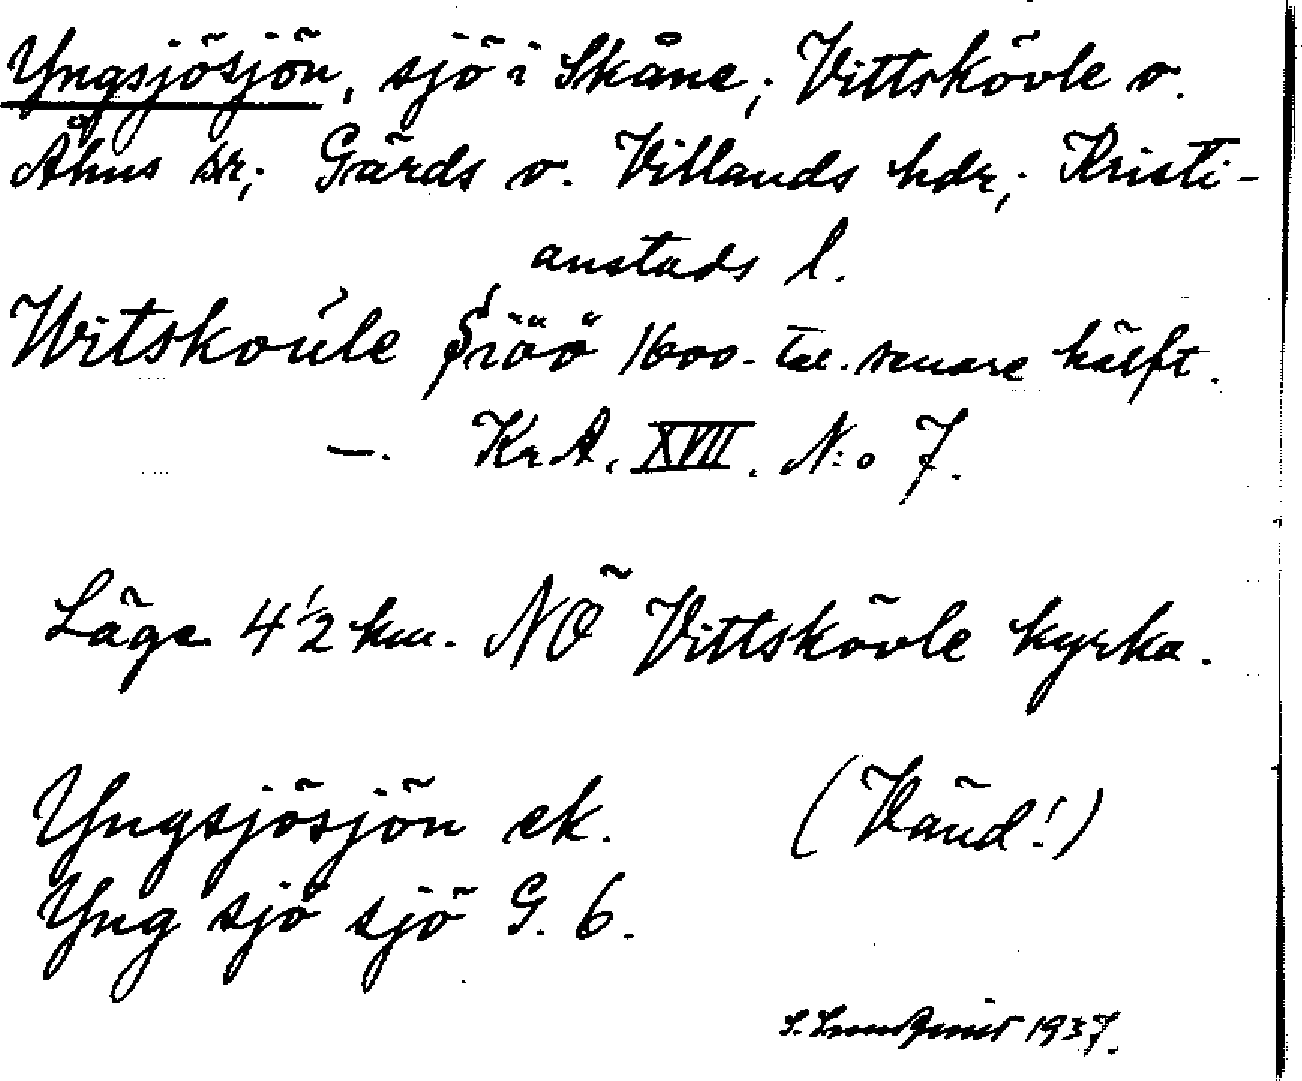 Yngsjösjön, sjö i Skåne; Vittskövle o.
Åhus sr; Gärds o. Villands hdr; Kristi-
anstads l.
Witskoúle Siöö 1600-tal. senare hälft.
—. Kr.A. XVII. N:o 7.
Läge 4 1/2 km. NÖ Vittskövle kyrka.
Yngsjösjön ek. (Vänd!)
Yng sjö sjö G. 6.
1937.